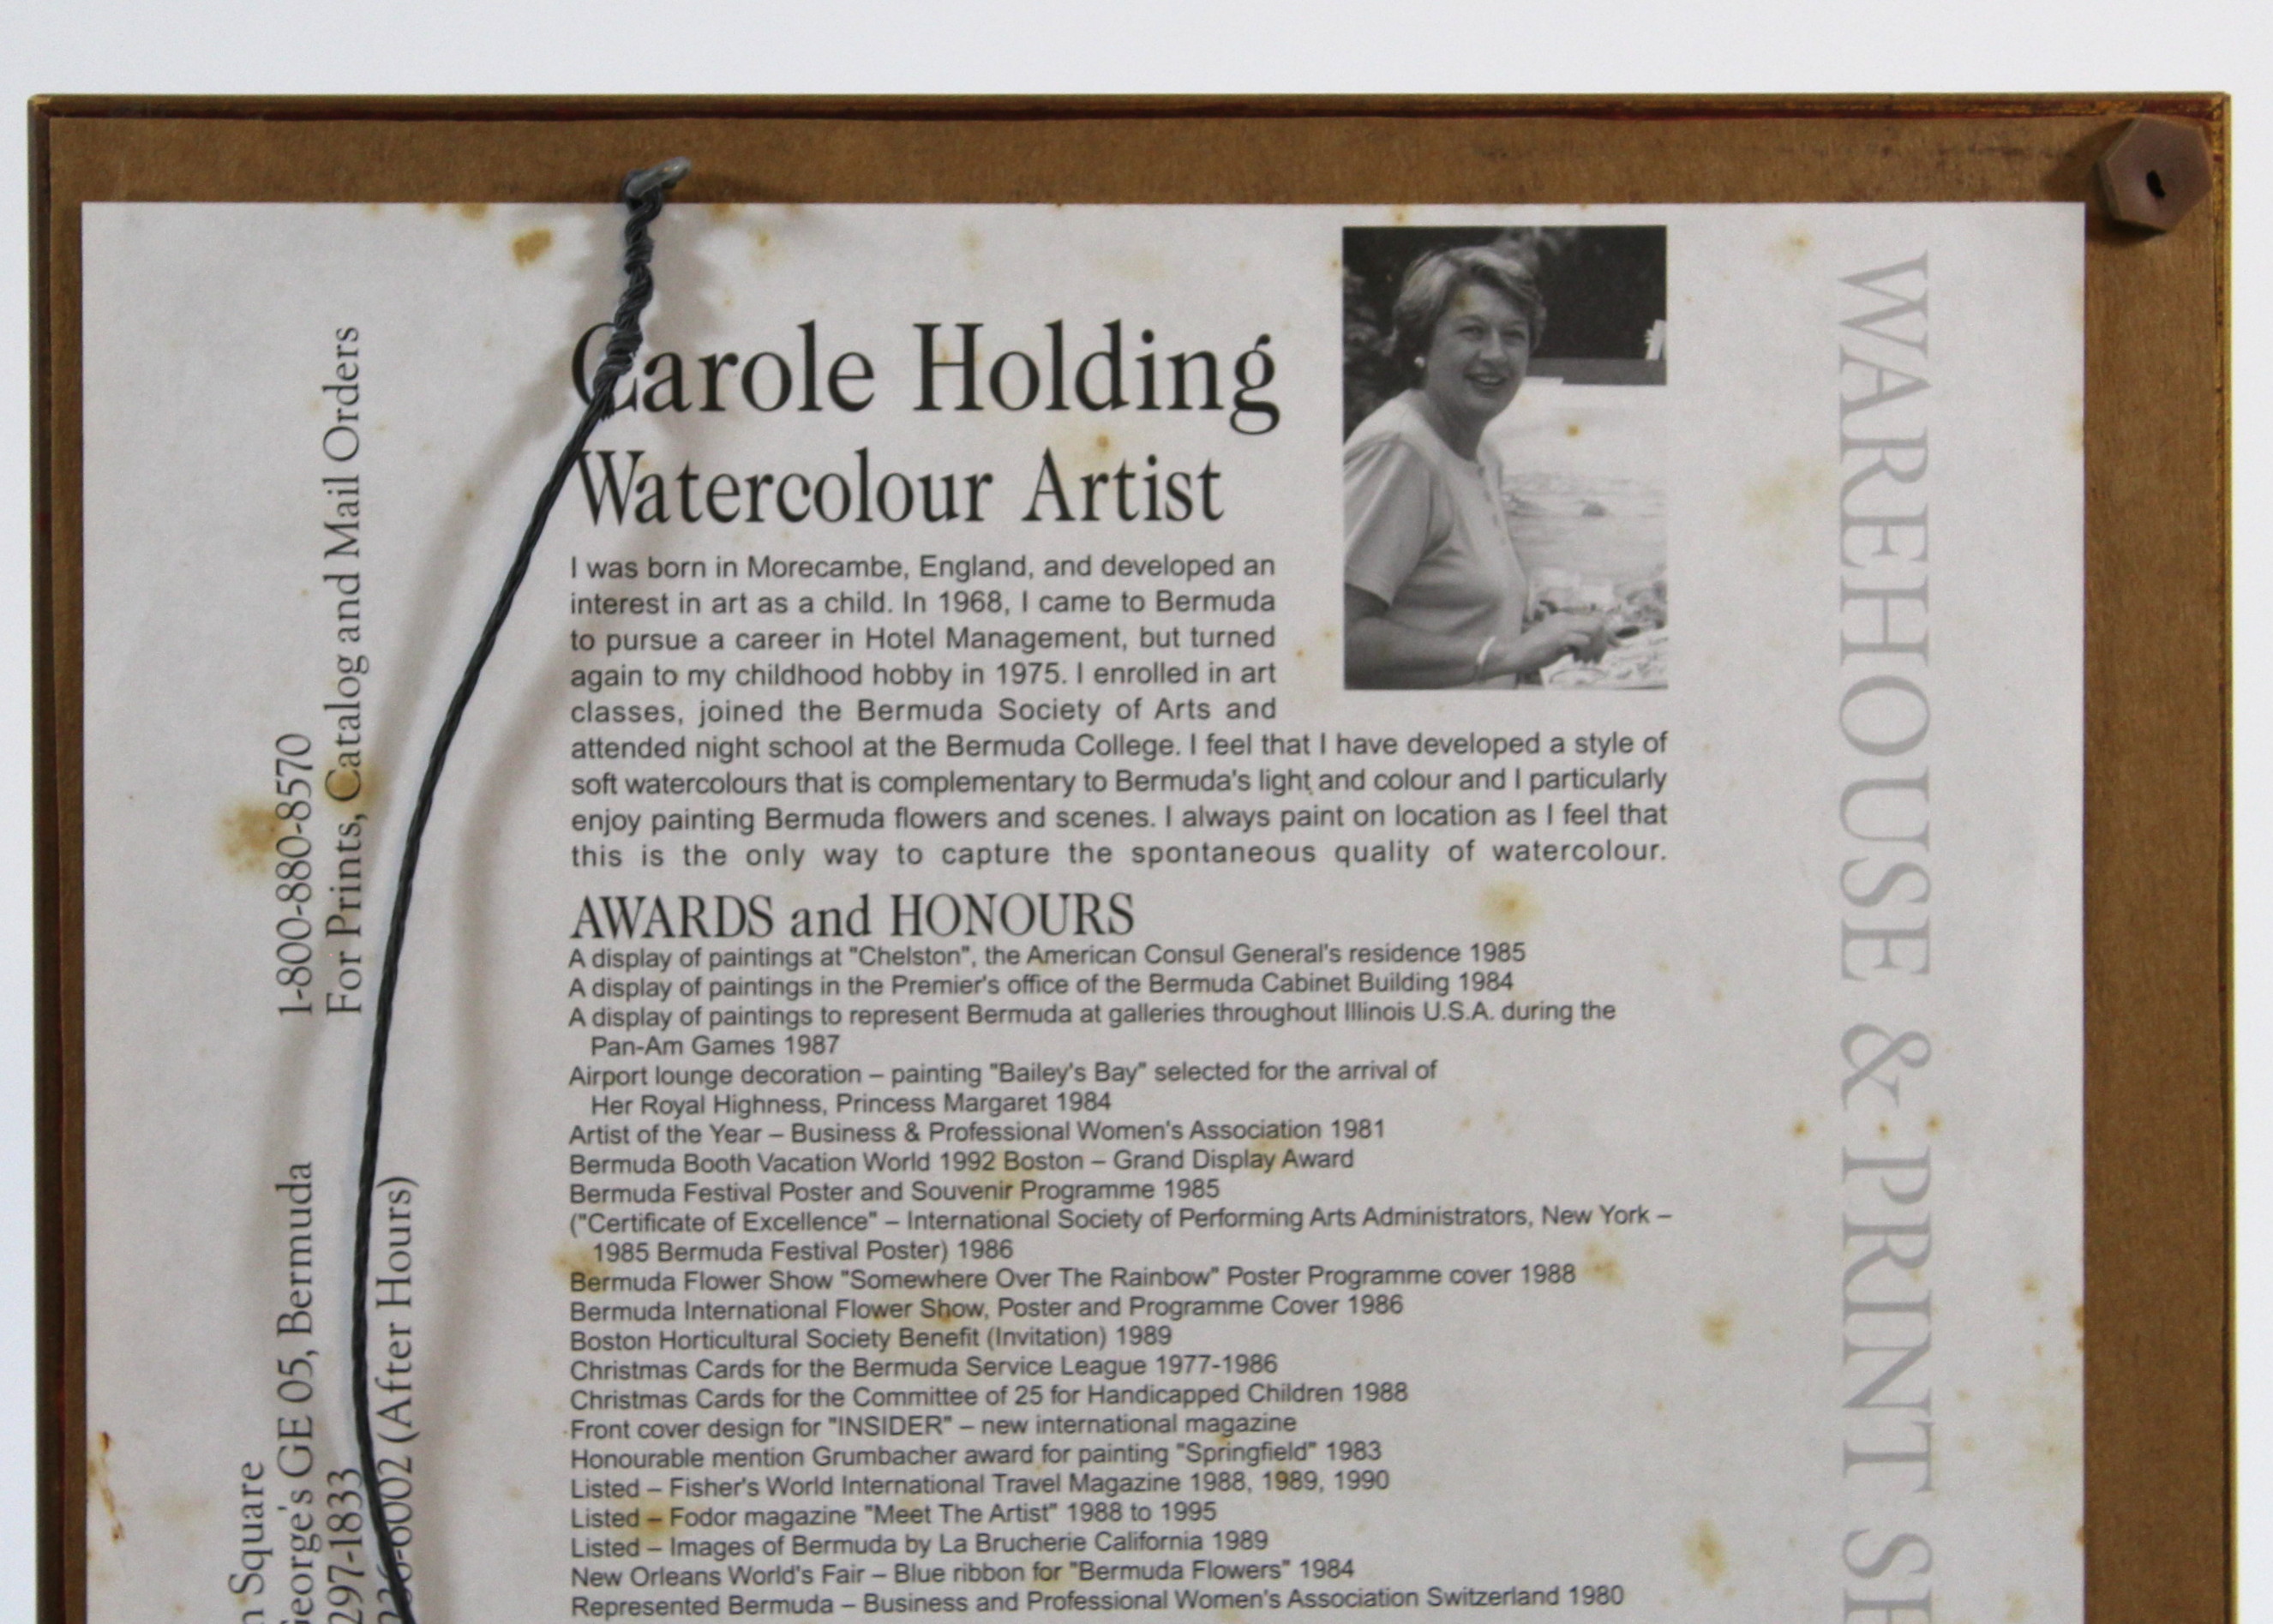 Carole Holding
Watercolour Artist
I was born in Morecambe, England, and developed an
interest in art as a child. In 1968, I came to Bermuda
to pursue a career in Hotel Management, but turned
again to my childhood hobby in 1975. I enrolled in art
classes, joined the Bermuda Society of Arts and
attended night school at the Bermuda College. I feel that I have developed a style of
soft watercolours that is complementary to Bermuda's light and colour and I particularly
enjoy painting Bermuda flowers and scenes. I always paint on location as I feel that
this is the only way to capture the spontaneous quality of watercolour.
AWARDS and HONOURS
A display of paintings at "Chelston", the American Consul General's residence 1985
A display of paintings in the Premier's office of the Bermuda Cabinet Building 1984
A display of paintings to represent Bermuda at galleries throughout Illinois U.S.A. during the
Pan-Am Games 1987
Airport lounge decoration – painting "Bailey's Bay" selected for the arrival of
Her Royal Highness, Princess Margaret 1984
Artist of the Year – Business & Professional Women's Association 1981
Bermuda Booth Vacation World 1992 Boston – Grand Display Award
Bermuda Festival Poster and Souvenir Programme 1985
("Certificate of Excellence" – International Society of Performing Arts Administrators, New York –
1985 Bermuda Festival Poster) 1986
Bermuda Flower Show "Somewhere Over The Rainbow" Poster Programme cover 1988
Bermuda International Flower Show, Poster and Programme Cover 1986
Boston Horticultural Society Benefit (Invitation) 1989
Christmas Cards for the Bermuda Service League 1977-1986
Christmas Cards for the Committee of 25 for Handicapped Children 1988
Front cover design for "INSIDER" – new international magazine
Honourable mention Grumbacher award for painting "Springfield" 1983
Listed – Fisher's World International Travel Magazine 1988, 1989, 1990
Listed – Fodor magazine "Meet The Artist" 1988 to 1995
Listed – Images of Bermuda by La Brucherie California 1989
New Orleans World's Fair – Blue ribbon for "Bermuda Flowers" 1984
Represented Bermuda – Business and Professional Women's Association Switzerland 1980
Square
George's GE 05, Bermuda
297-1833
(After Hours)
1-800-880-8570
For Prints, Catalog and Mail Orders
WAREHOUSE & PRINT